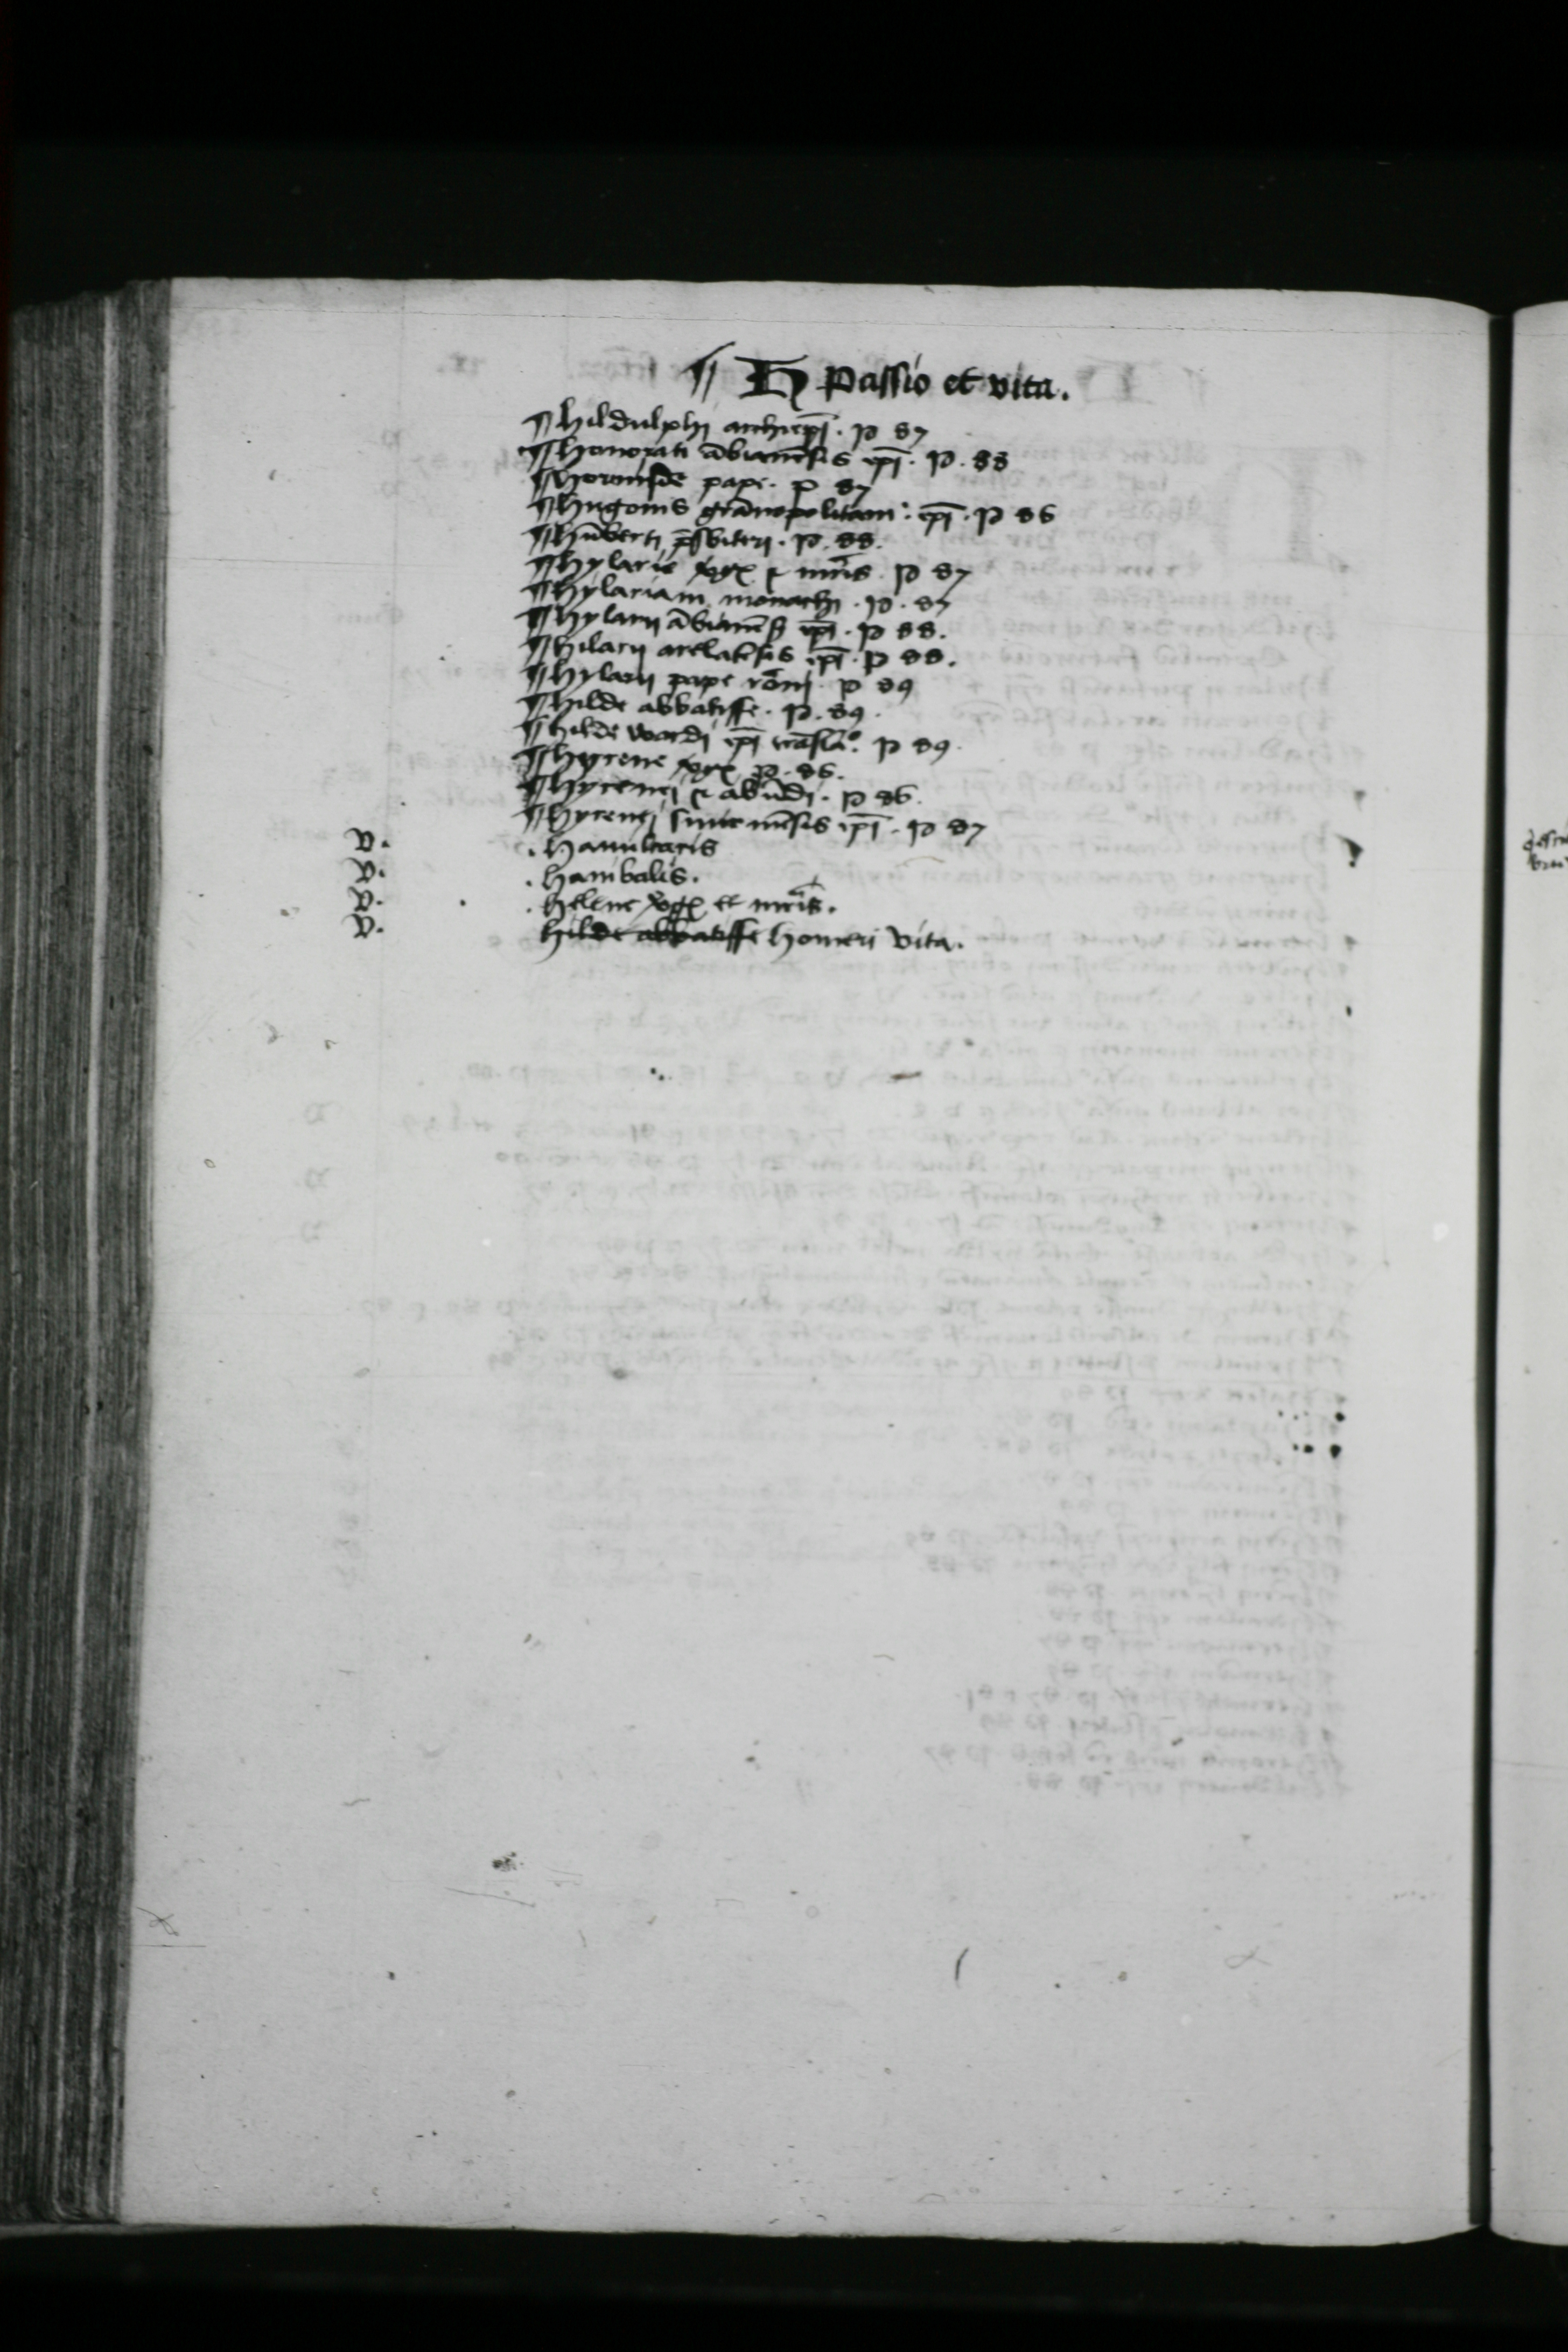 ¶ H Passio et vita.
¶ hildulphi archiep̄i · p 87
¶ honorati ābianēsis ep̄i · p · 88
¶ hormisde pape · p 87
¶ hugonis grānopolitani : ep̄i · p 86
¶ hūberti p̄sbiteri · p · 88.
¶ hylarie v̄gꝭ ⁊ mr̄is · p 87
¶ hylariani monachi · p · 87
¶ hylarij ābianēß ep̄i · p 88.
¶ hilarij arelatēsis ep̄i · p 88.
¶ hylarij pape romj · p 89
¶ hilde abbatisse · p · 89 ·
¶ hildewardi ep̄i trāslaº · p 89 ·
¶ hyrene v̄gꝭ p · 86.
¶ hyrenej ⁊ abūdi · p 86.
¶ hyrenej sirmiēsis ep̄i · p 87
v. · hamilcaris
v. · hanibalis.
v. · helene v̄gꝭ et mr̄is.
v. hilde abbatisse homeri vita.